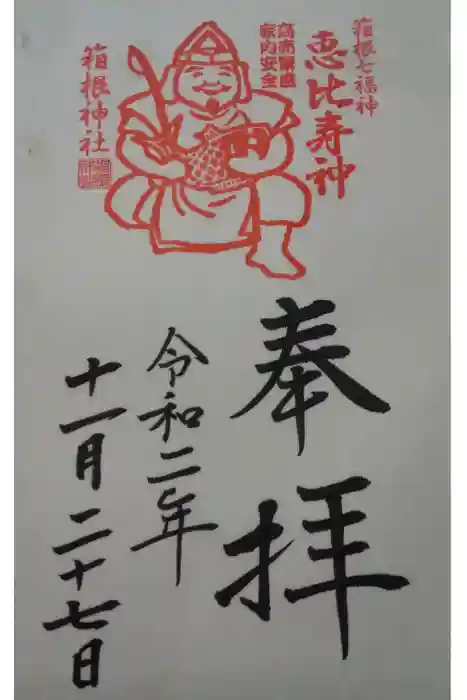 箱根七福神
恵比寿神
商売繁盛
家内安全
箱根神社
奉拝
令和二年
十一月二十七日